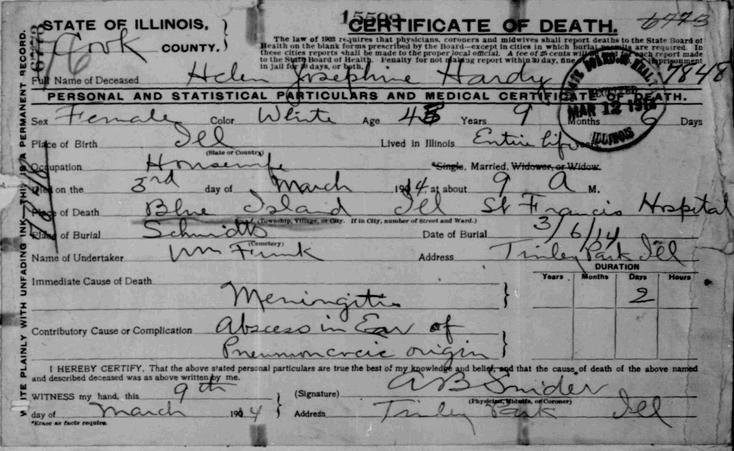 STATE OF ILLINOIS,
Cook COUNTY.
CERTIFICATE OF DEATH.
The law of 1903 requires that physicians, coroners and midwives shall report deaths to the State Board of
Health on the blank forms prescribed by the Board—except in cities in which burial permits are required. In
these cities reports shall be made to the proper local official. A fee of 25 cents will be paid for each report made
to the State Board of Health. Penalty for not making report within 30 days, fine imprisonment
in jail for 30 days, or both.
Full Name of Deceased Helen Josephine Hardy 7848
PERSONAL AND STATISTICAL PARTICULARS AND MEDICAL CERTIFICATE OF DEATH.
STATE BOARD OF HEALTH
MAR 12 1914
ILLINOIS
Sex Female Color White Age 43 Years 9 Months 6 Days
Place of Birth Ill Lived in Illinois Entire life
(State or Country)
Occupation Housewife *Single, Married, Widower, or Widow.
Died on the 3rd day of March 1914 at about 9 A M.
Place of Death Blue Island Ill St Francis Hospital
(Township, Village, or City. If in City, number of Street and Ward.)
Place of Burial Schmidts Date of Burial 3/6/14
(Cemetery)
Name of Undertaker Wm Funk Address Tinley Park Ill
DURATION
Years Months Days Hours
Immediate Cause of Death
Meningitis 2
Contributory Cause or Complication Abscess in Ear of
Pneumococcic origin
I HEREBY CERTIFY, That the above stated personal particulars are true the best of my knowledge and belief, and that the cause of death of the above named
and described deceased was as above written by me.
WITNESS my hand, this 9th (Signature) AB Snider
(Physician, Midwife, or Coroner)
day of March 1914 Address Tinley Park Ill
*Erase as facts require.
WRITE PLAINLY WITH UNFADING INK—THIS IS A PERMANENT RECORD.